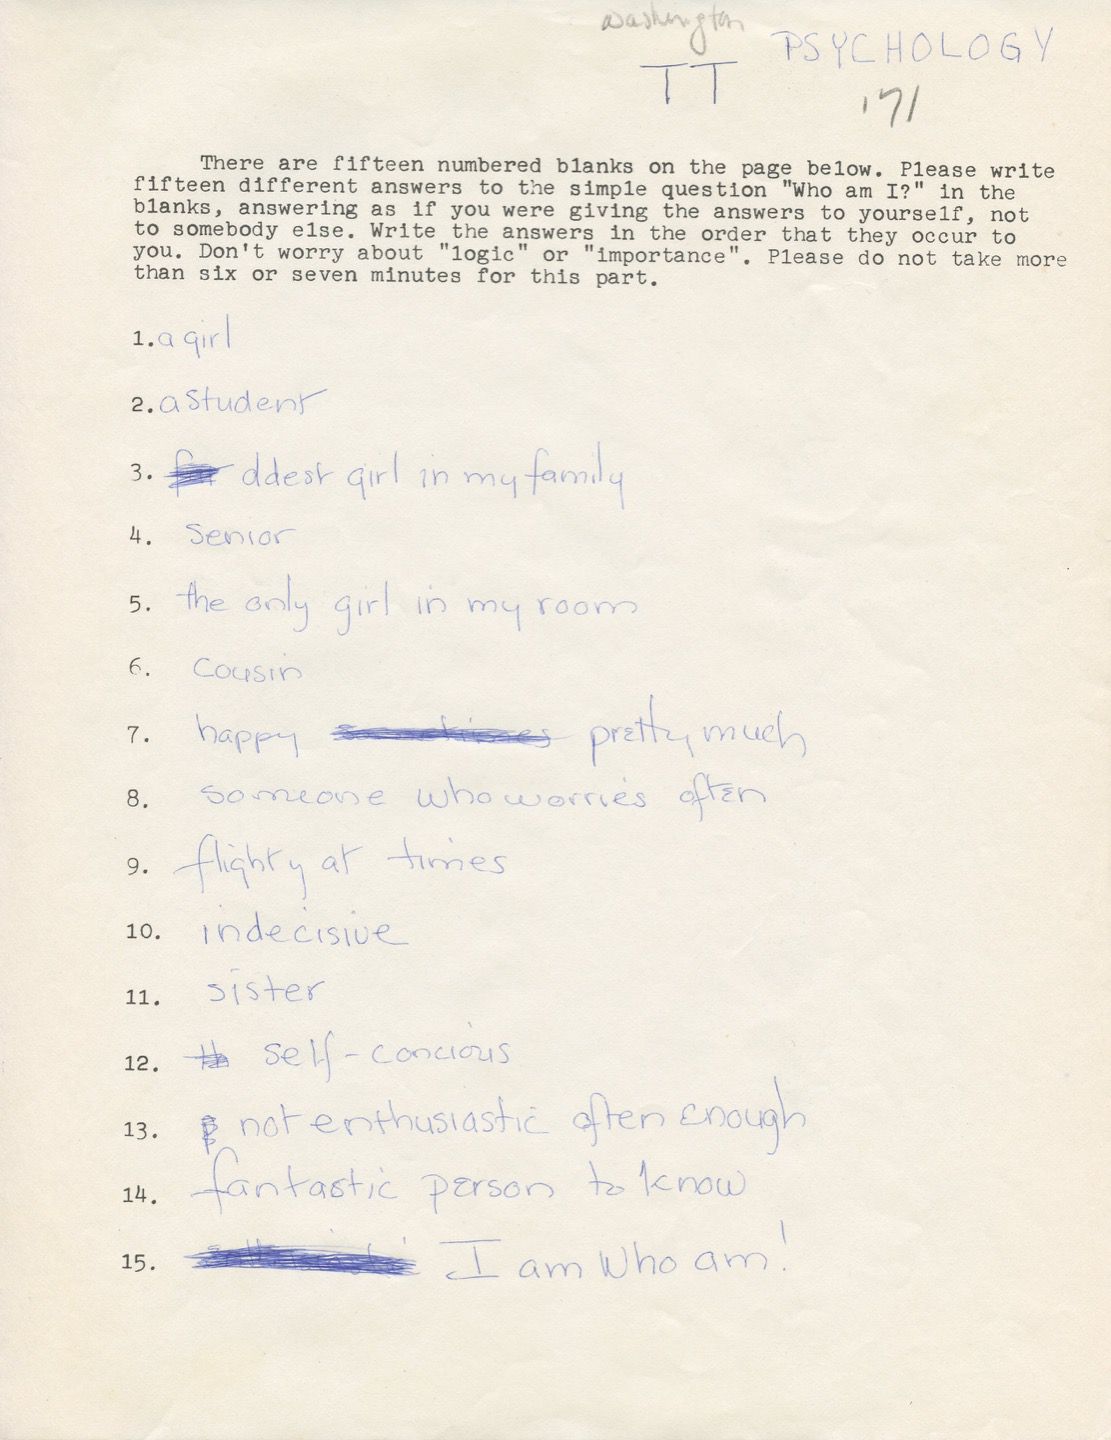 washington
PSYCHOLOGY
TT
'71
There are fifteen numbered blanks on the page below. Please write
fifteen different answers to the simple question "Who am I?" in the
blanks, answering as if you were giving the answers to yourself, not
to somebody else. Write the answers in the order that they occur to
you. Don't worry about "logic" or "importance". Please do not take more
than six or seven minutes for this part.
1. a girl
2. a student
3. oldest girl in my family
4. senior
5. the only girl in my room
6. cousin
7. happy sometimes pretty much
8. someone who worries often
9. flighty at times
10. indecisive
11. sister
12. self-concious
13. not enthusiastic often enough
14. fantastic person to know
15. I am who am!